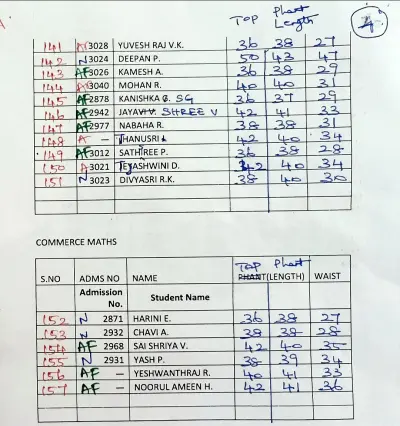 Top Phant Length 4
141 AF 3028 YUVESH RAJ V.K. 36 38 27
142 N 3024 DEEPAN P. 50 43 47
143 AF 3026 KAMESH A. 36 38 29
144 AF 3040 MOHAN R. 40 40 31
145 AF 2878 KANISHKA G. SG 36 37 29
146 AF 2942 JAYAVV. SHREE V 42 41 33
147 AF 2977 NABAHA R. 38 38 31
148 A — THANUSRI L 42 40 34
149 AF 3012 SATHREE P. 36 38 28
150 A 3021 TEJASHWINI D. 42 40 34
151 N 3023 DIVYASRI R.K. 38 40 30
COMMERCE MATHS
S.NO ADMS NO NAME Top PHANT Phant (LENGTH) WAIST
Admission No. Student Name
152 N 2871 HARINI E. 36 38 27
153 N 2932 CHAVI A. 38 38 28
154 AF 2968 SAI SHRIYA V. 42 40 35
155 N 2931 YASH P. 38 39 34
156 AF — YESHWANTHRAJ R. 40 41 33
157 AF — NOORUL AMEEN H. 42 41 36